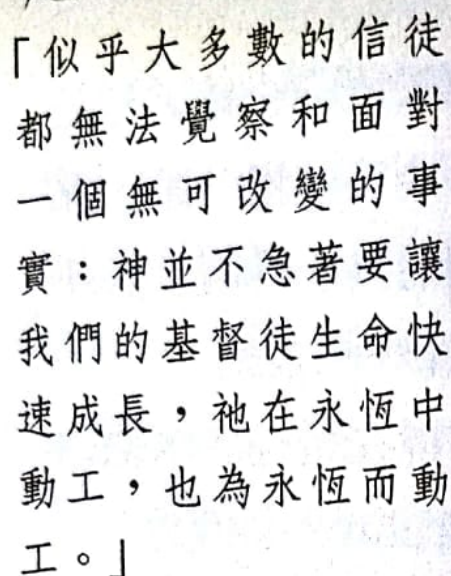 「似乎大多數的信徒
都無法覺察和面對
一個無可改變的事
實：神並不急著要讓
我們的基督徒生命快
速成長，祂在永恆中
動工，也為永恆而動
工。」